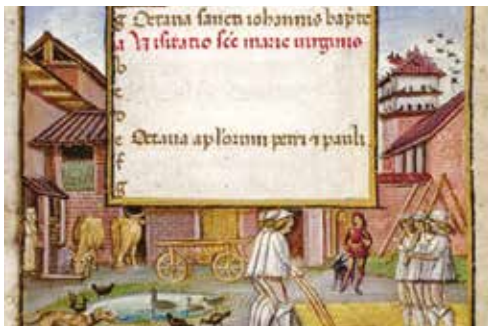 g Octaua sancti iohannis bapt̄e
a Visitatio sc̄e marie uirginis
b
c
d
e Octaua apl̓orum petri ⁊ pauli
f
g